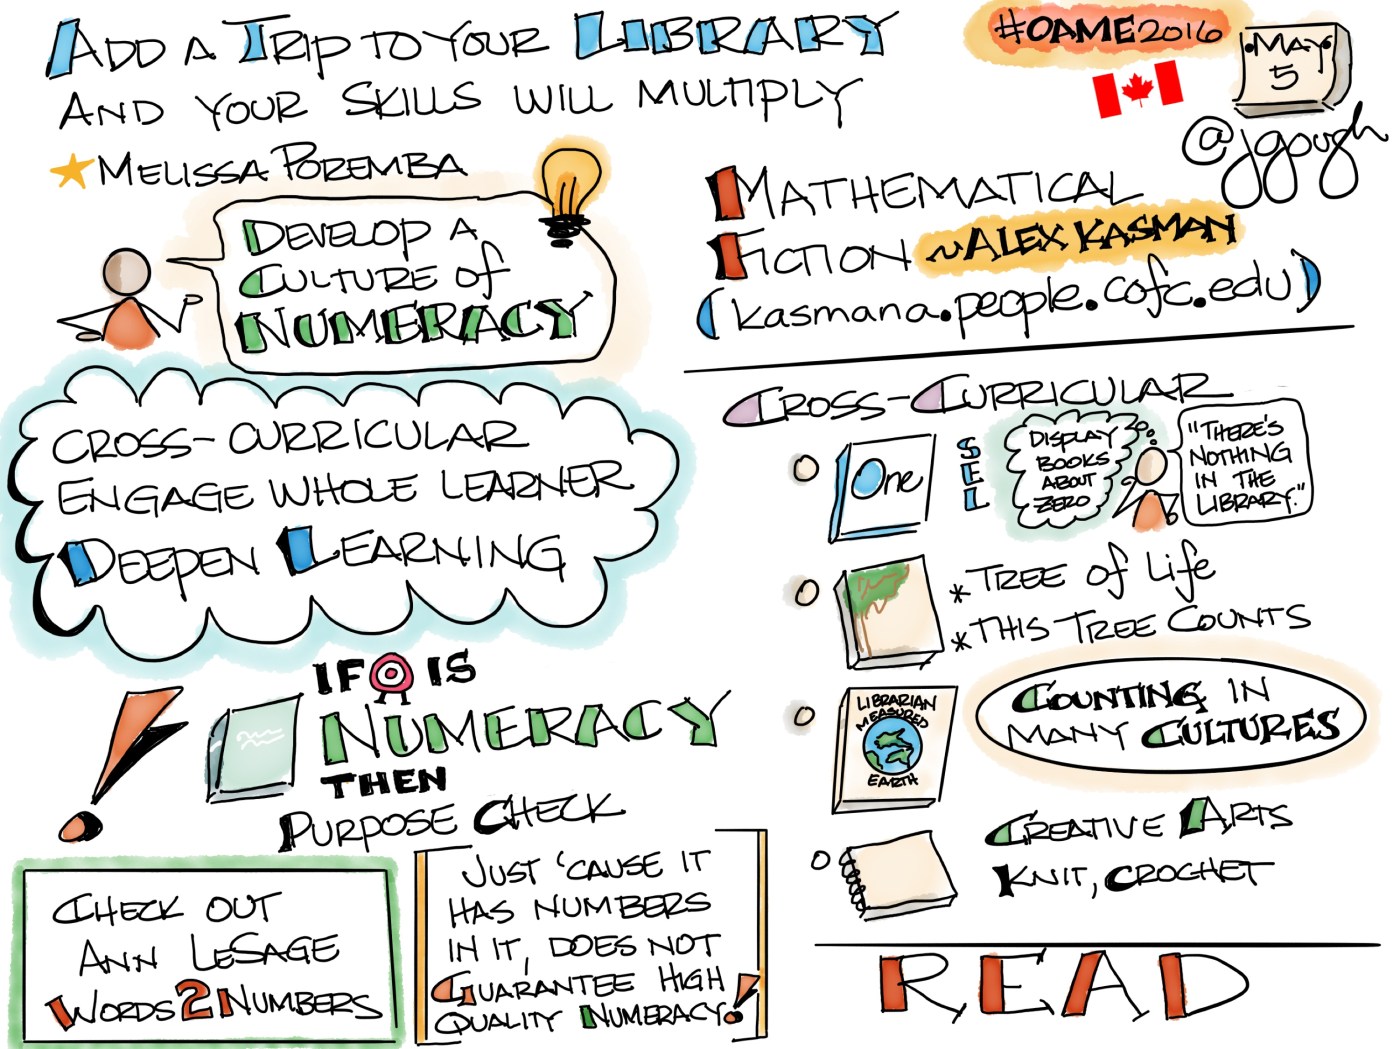 ADD A TRIP TO YOUR LIBRARY
AND YOUR SKILLS WILL MULTIPLY
MELISSA POREMBA
#OAME2016
MAY
5
@jgough
DEVELOP A
CULTURE of
NUMERACY
CROSS-CURRICULAR
ENGAGE WHOLE LEARNER
DEEPEN LEARNING
IF IS
NUMERACY
THEN
PURPOSE CHECK
CHECK OUT
ANN LESAGE
WORDS2NUMBERS
JUST 'CAUSE IT
HAS NUMBERS
IN IT, DOES NOT
GUARANTEE HIGH
QUALITY NUMERACY!
MATHEMATICAL
FICTION ~ALEX KASMAN
(kasmana.people.cofc.edu)
CROSS-CURRICULAR
One
SEL
DISPLAY
BOOKS
ABOUT
ZERO
"THERE'S
NOTHING
IN THE
LIBRARY."
*TREE of Life
*THIS TREE COUNTS
LIBRARIAN
MEASURED
EARTH
COUNTING IN
MANY CULTURES
CREATIVE ARTS
KNIT, CROCHET
READ